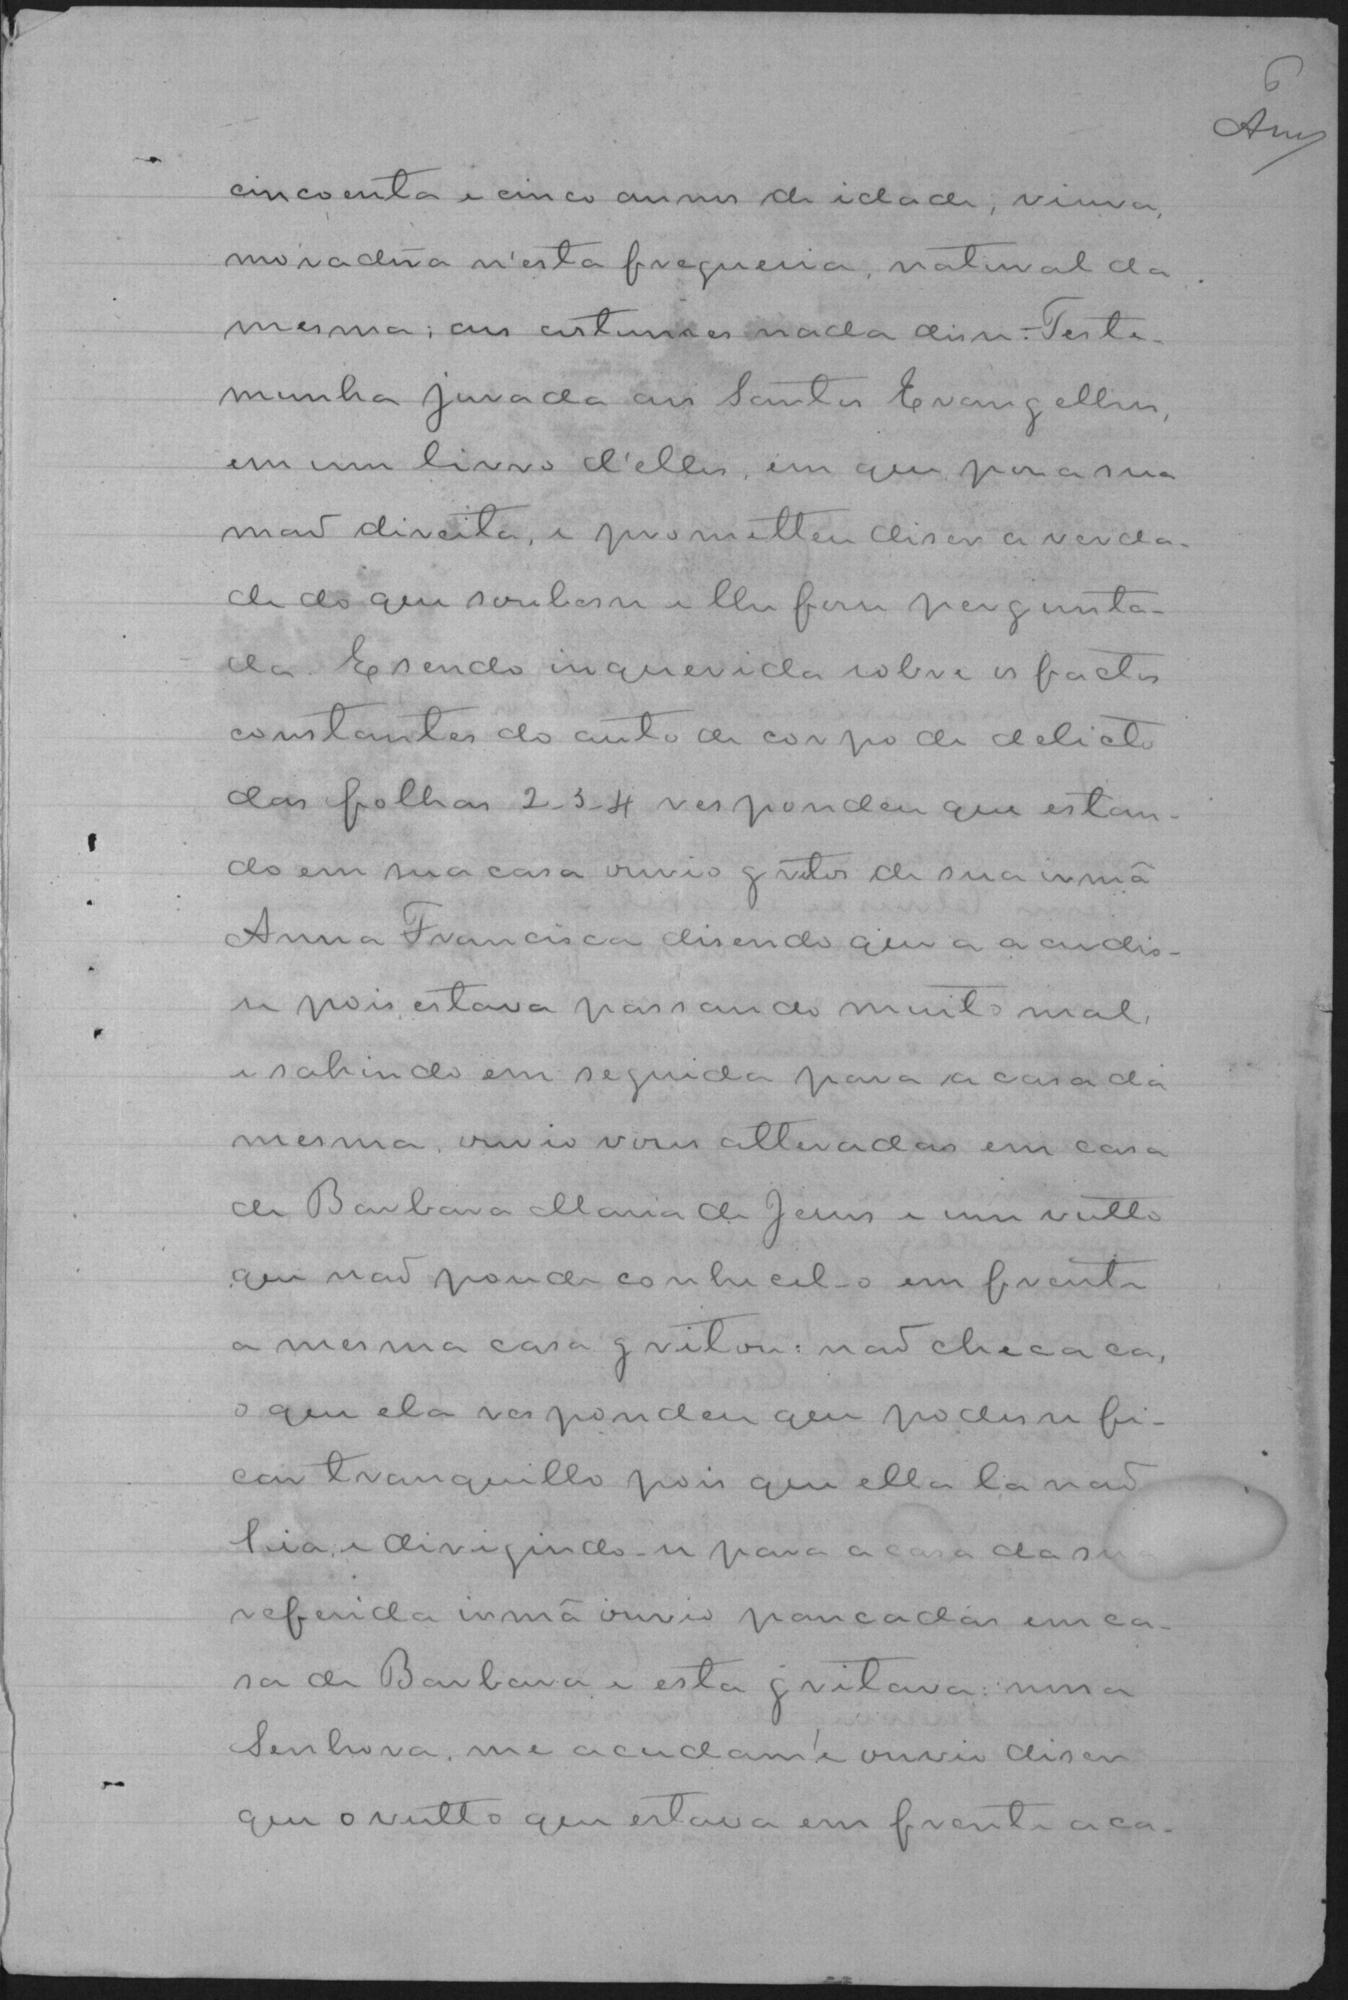 6
cincoenta e cinco annos de idade, viuva,
moradora n'esta freguesia, natural da
mesma; aos costumes nada disse:- Teste-
munha jurada aos Santos Evangelhos,
em um livro d'elles, em que pos a sua
maõ direita, e prometteu diser a verda-
de do que soubesse e lhe fosse pergunta-
da. E sendo inquerida sobre os factos
constantes do auto de corpo de delicto
das folhas 2-3-4 respondeu que estan-
do em sua casa ouvio gritos de sua irmã
Anna Francisca disendo que a acudis-
se pois estava passando muito mal,
e sahindo em seguida para a casa da
mesma, ouvio voses alteradas em casa
de Barbara Maria de Jesus e um vulto
que naõ poude conhecel-o em frente
a mesma casa gritou: naõ checa ca,
o que ela respondeu que podesse fi-
car tranquillo pois que ella la naõ
hia, e dirigindo-se para a casa da sua
referida irmã ouvio pancadas em ca-
sa de Barbara e esta gritava: nossa
Senhora, me acudam! e ouvio diser
que o vulto que estava em frente a ca-